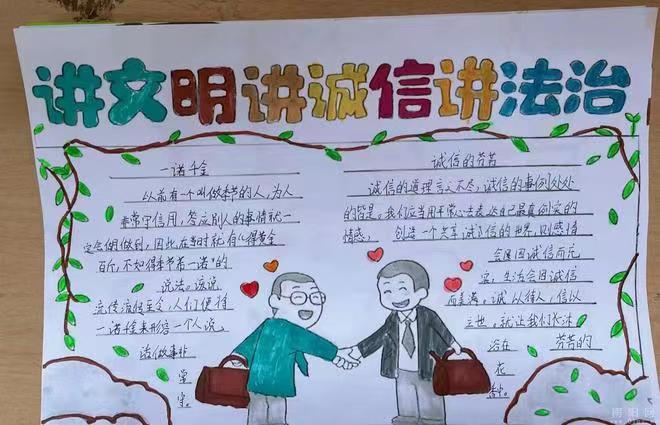 讲文明讲诚信讲法治
一诺千金
以前有一个叫做季节的人,为人
非常守信用,答应别人的事情就一
定会做到,因此,在当时就有《得黄金
百斤,不如得季节一诺》的
说法。该说
流传流传至今,人们便将
一诺千金来形容一个人说
话做事非
常
守。
诚信的芳香
诚信的道理言之不尽,诚信的事例处处
的皆是。我们应当用平常心去表达自己最真倒实的
情感, 创造一个共享诚信的世界,则感情
会因诚信而充
实,生活会因诚信
而美满,诚以待人,信以
立世,就让我们长沐
浴在 芳香的
花
香中。
南阳网